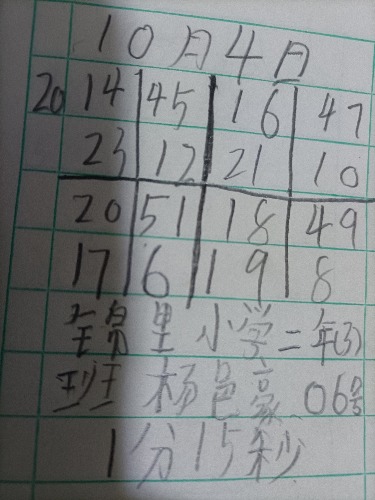 10月4日
20 14 45 16 47
23 12 21 10
20 51 18 49
17 6 19 8
里小学二年(3)
班 杨邑豪 06号
1分15秒